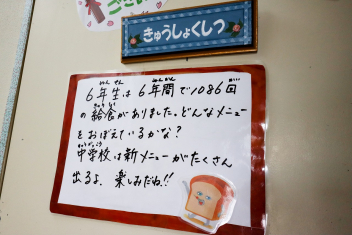 きゅうしょくしつ
6年生は6年間で1086回
の給食がありました。どんなメニュー
をおぼえているかな？
中学校は新メニューがたくさん
出るよ。楽しみだね!!